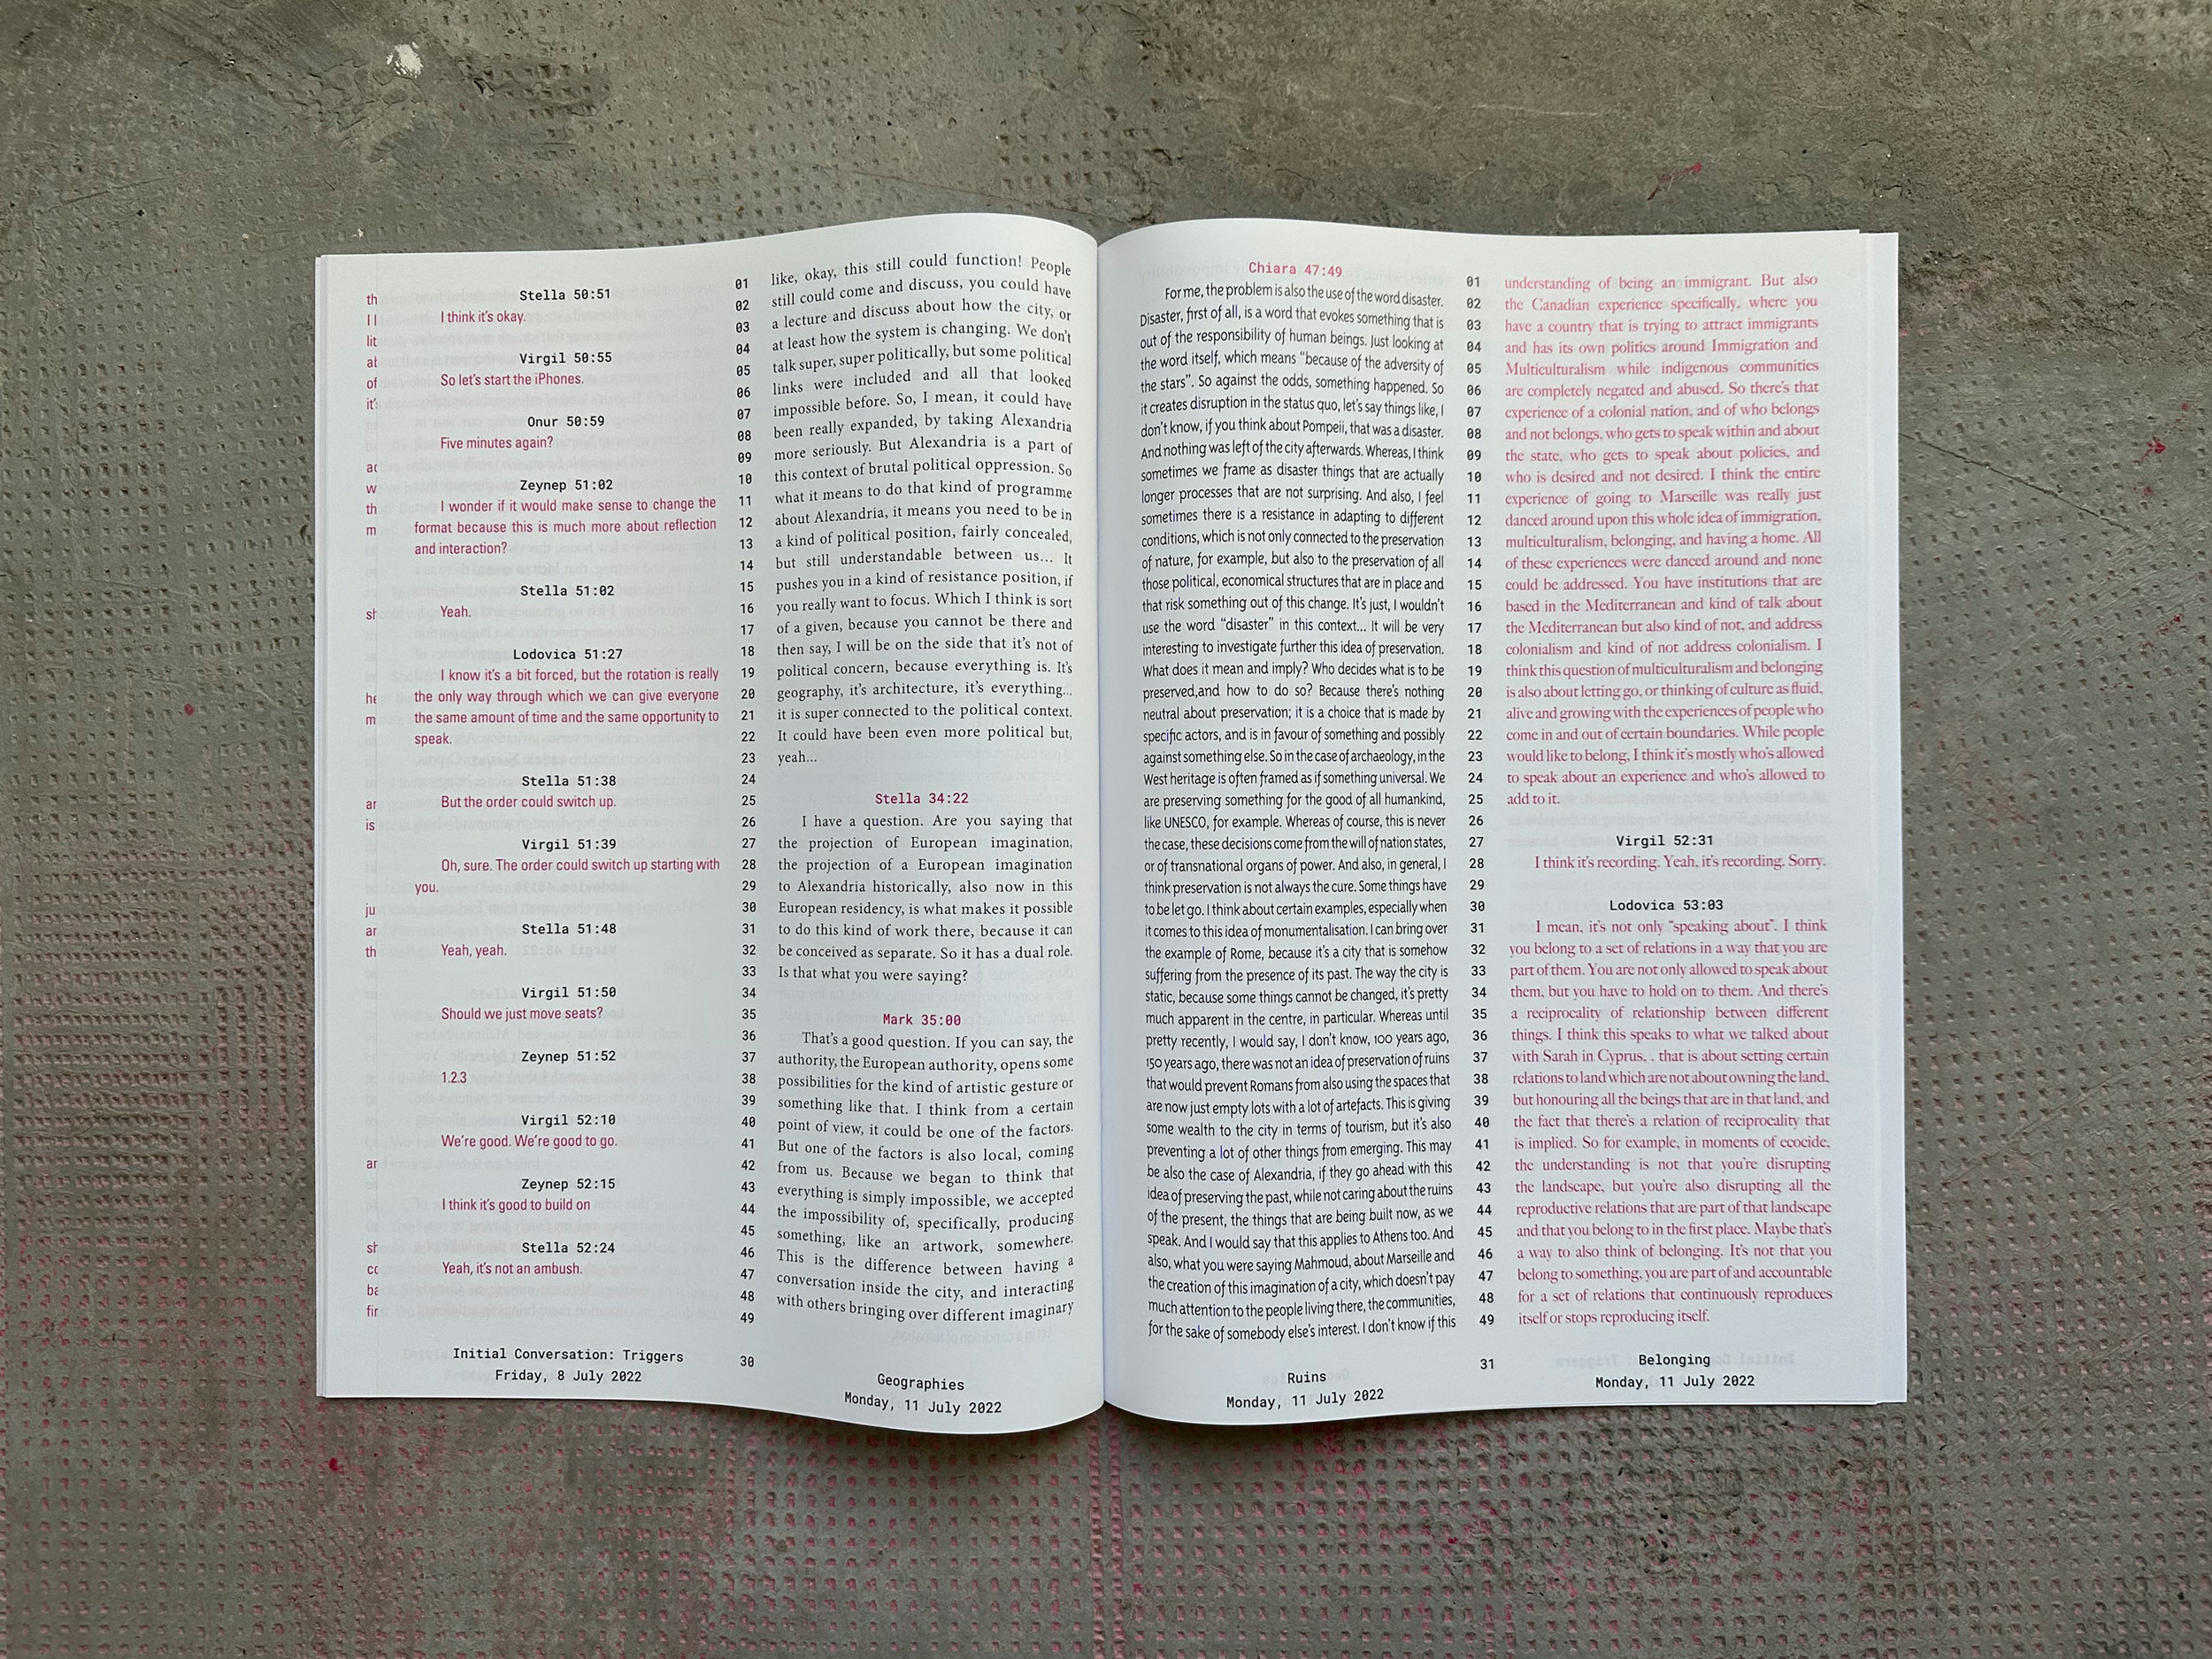 Stella 50:51
I think it's okay.
Virgil 50:55
So let's start the iPhones.
Onur 50:59
Five minutes again?
Zeynep 51:02
I wonder if it would make sense to change the
format because this is much more about reflection
and interaction?
Stella 51:02
Yeah.
Lodovica 51:27
I know it's a bit forced, but the rotation is really
the only way through which we can give everyone
the same amount of time and the same opportunity to
speak.
Stella 51:38
But the order could switch up.
Virgil 51:39
Oh, sure. The order could switch up starting with
you.
Stella 51:48
Yeah, yeah.
Virgil 51:50
Should we just move seats?
Zeynep 51:52
1.2.3
Virgil 52:10
We're good. We're good to go.
Zeynep 52:15
I think it's good to build on
Stella 52:24
Yeah, it's not an ambush.
Initial Conversation: Triggers
Friday, 8 July 2022
01
02
03
04
05
06
07
08
09
10
11
12
13
14
15
16
17
18
19
20
21
22
23
24
25
26
27
28
29
30
31
32
33
34
35
36
37
38
39
40
41
42
43
44
45
46
47
48
49
30
like, okay, this still could function! People
still could come and discuss, you could have
a lecture and discuss about how the city, or
at least how the system is changing. We don't
talk super, super politically, but some political
links were included and all that looked
impossible before. So, I mean, it could have
been really expanded, by taking Alexandria
more seriously. But Alexandria is a part of
this context of brutal political oppression. So
what it means to do that kind of programme
about Alexandria, it means you need to be in
a kind of political position, fairly concealed,
but still understandable between us... It
pushes you in a kind of resistance position, if
you really want to focus. Which I think is sort
of a given, because you cannot be there and
then say, I will be on the side that it's not of
political concern, because everything is. It's
geography, it's architecture, it's everything...
it is super connected to the political context.
It could have been even more political but,
yeah...
Stella 34:22
I have a question. Are you saying that
the projection of European imagination,
the projection of a European imagination
to Alexandria historically, also now in this
European residency, is what makes it possible
to do this kind of work there, because it can
be conceived as separate. So it has a dual role.
Is that what you were saying?
Mark 35:00
That's a good question. If you can say, the
authority, the European authority, opens some
possibilities for the kind of artistic gesture or
something like that. I think from a certain
point of view, it could be one of the factors.
But one of the factors is also local, coming
from us. Because we began to think that
everything is simply impossible, we accepted
the impossibility of, specifically, producing
something, like an artwork, somewhere.
This is the difference between having a
conversation inside the city, and interacting
with others bringing over different imaginary
Geographies
Monday, 11 July 2022
Chiara 47:49
For me, the problem is also the use of the word disaster.
Disaster, first of all, is a word that evokes something that is
out of the responsibility of human beings. Just looking at
the word itself, which means "because of the adversity of
the stars". So against the odds, something happened. So
it creates disruption in the status quo, let's say things like, I
don't know, if you think about Pompeii, that was a disaster.
And nothing was left of the city afterwards. Whereas, I think
sometimes we frame as disaster things that are actually
longer processes that are not surprising. And also, I feel
sometimes there is a resistance in adapting to different
conditions, which is not only connected to the preservation
of nature, for example, but also to the preservation of all
those political, economical structures that are in place and
that risk something out of this change. It's just, I wouldn't
use the word "disaster" in this context... It will be very
interesting to investigate further this idea of preservation.
What does it mean and imply? Who decides what is to be
preserved,and how to do so? Because there's nothing
neutral about preservation; it is a choice that is made by
specific actors, and is in favour of something and possibly
against something else. So in the case of archaeology, in the
West heritage is often framed as if something universal. We
are preserving something for the good of all humankind,
like UNESCO, for example. Whereas of course, this is never
the case, these decisions come from the will of nation states,
or of transnational organs of power. And also, in general, I
think preservation is not always the cure. Some things have
to be let go. I think about certain examples, especially when
it comes to this idea of monumentalisation. I can bring over
the example of Rome, because it's a city that is somehow
suffering from the presence of its past. The way the city is
static, because some things cannot be changed, it's pretty
much apparent in the centre, in particular. Whereas until
pretty recently, I would say, I don't know, 100 years ago,
150 years ago, there was not an idea of preservation of ruins
that would prevent Romans from also using the spaces that
are now just empty lots with a lot of artefacts. This is giving
some wealth to the city in terms of tourism, but it's also
preventing a lot of other things from emerging. This may
be also the case of Alexandria, if they go ahead with this
idea of preserving the past, while not caring about the ruins
of the present, the things that are being built now, as we
speak. And I would say that this applies to Athens too. And
also, what you were saying Mahmoud, about Marseille and
the creation of this imagination of a city, which doesn't pay
much attention to the people living there, the communities,
for the sake of somebody else's interest. I don't know if this
Ruins
Monday, 11 July 2022
01
02
03
04
05
06
07
08
09
10
11
12
13
14
15
16
17
18
19
20
21
22
23
24
25
26
27
28
29
30
31
32
33
34
35
36
37
38
39
40
41
42
43
44
45
46
47
48
49
31
understanding of being an immigrant. But also
the Canadian experience specifically, where you
have a country that is trying to attract immigrants
and has its own politics around Immigration and
Multiculturalism while indigenous communities
are completely negated and abused. So there's that
experience of a colonial nation, and of who belongs
and not belongs, who gets to speak within and about
the state, who gets to speak about policies, and
who is desired and not desired. I think the entire
experience of going to Marseille was really just
danced around upon this whole idea of immigration,
multiculturalism, belonging, and having a home. All
of these experiences were danced around and none
could be addressed. You have institutions that are
based in the Mediterranean and kind of talk about
the Mediterranean but also kind of not, and address
colonialism and kind of not address colonialism. I
think this question of multiculturalism and belonging
is also about letting go, or thinking of culture as fluid,
alive and growing with the experiences of people who
come in and out of certain boundaries. While people
would like to belong, I think it's mostly who's allowed
to speak about an experience and who's allowed to
add to it.
Virgil 52:31
I think it's recording. Yeah, it's recording. Sorry.
Lodovica 53:03
I mean, it's not only "speaking about". I think
you belong to a set of relations in a way that you are
part of them. You are not only allowed to speak about
them, but you have to hold on to them. And there's
a reciprocality of relationship between different
things. I think this speaks to what we talked about
with Sarah in Cyprus, . that is about setting certain
relations to land which are not about owning the land,
but honouring all the beings that are in that land, and
the fact that there's a relation of reciprocality that
is implied. So for example, in moments of ecocide,
the understanding is not that you're disrupting
the landscape, but you're also disrupting all the
reproductive relations that are part of that landscape
and that you belong to in the first place. Maybe that's
a way to also think of belonging. It's not that you
belong to something, you are part of and accountable
for a set of relations that continuously reproduces
itself or stops reproducing itself.
Belonging
Monday, 11 July 2022